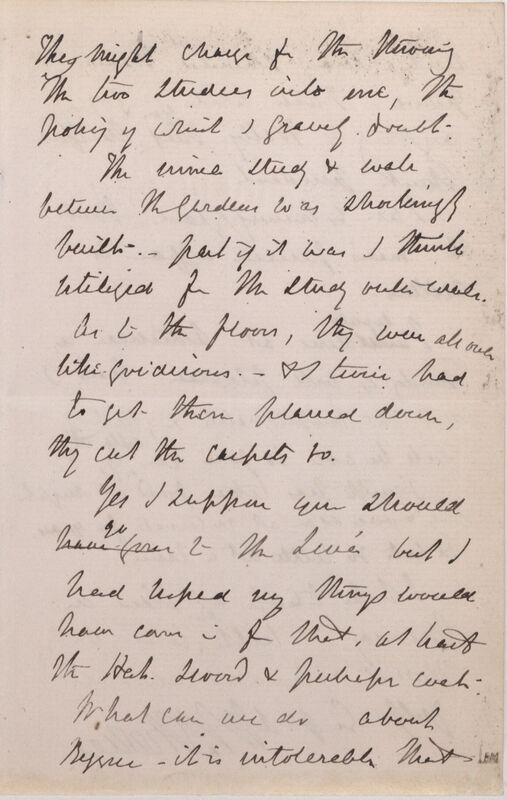 They might charge for the throwing
the two studies into one, the
policy of which I gravely doubt.
The inner study & wall
between the gardens was shockingly
built. - part of it was I think
utilized for the study outer wall.
As to the floors, they were all over
like gridirons. - & I twice had
to get them planed down,
they cut the carpets so.
Yes I suppose you should
go
have gone to the Levée but I
had hoped my things would
have come in for that, at least
the Hat. Sword & perhaps coat.
What can we do about
- it is intolerable that